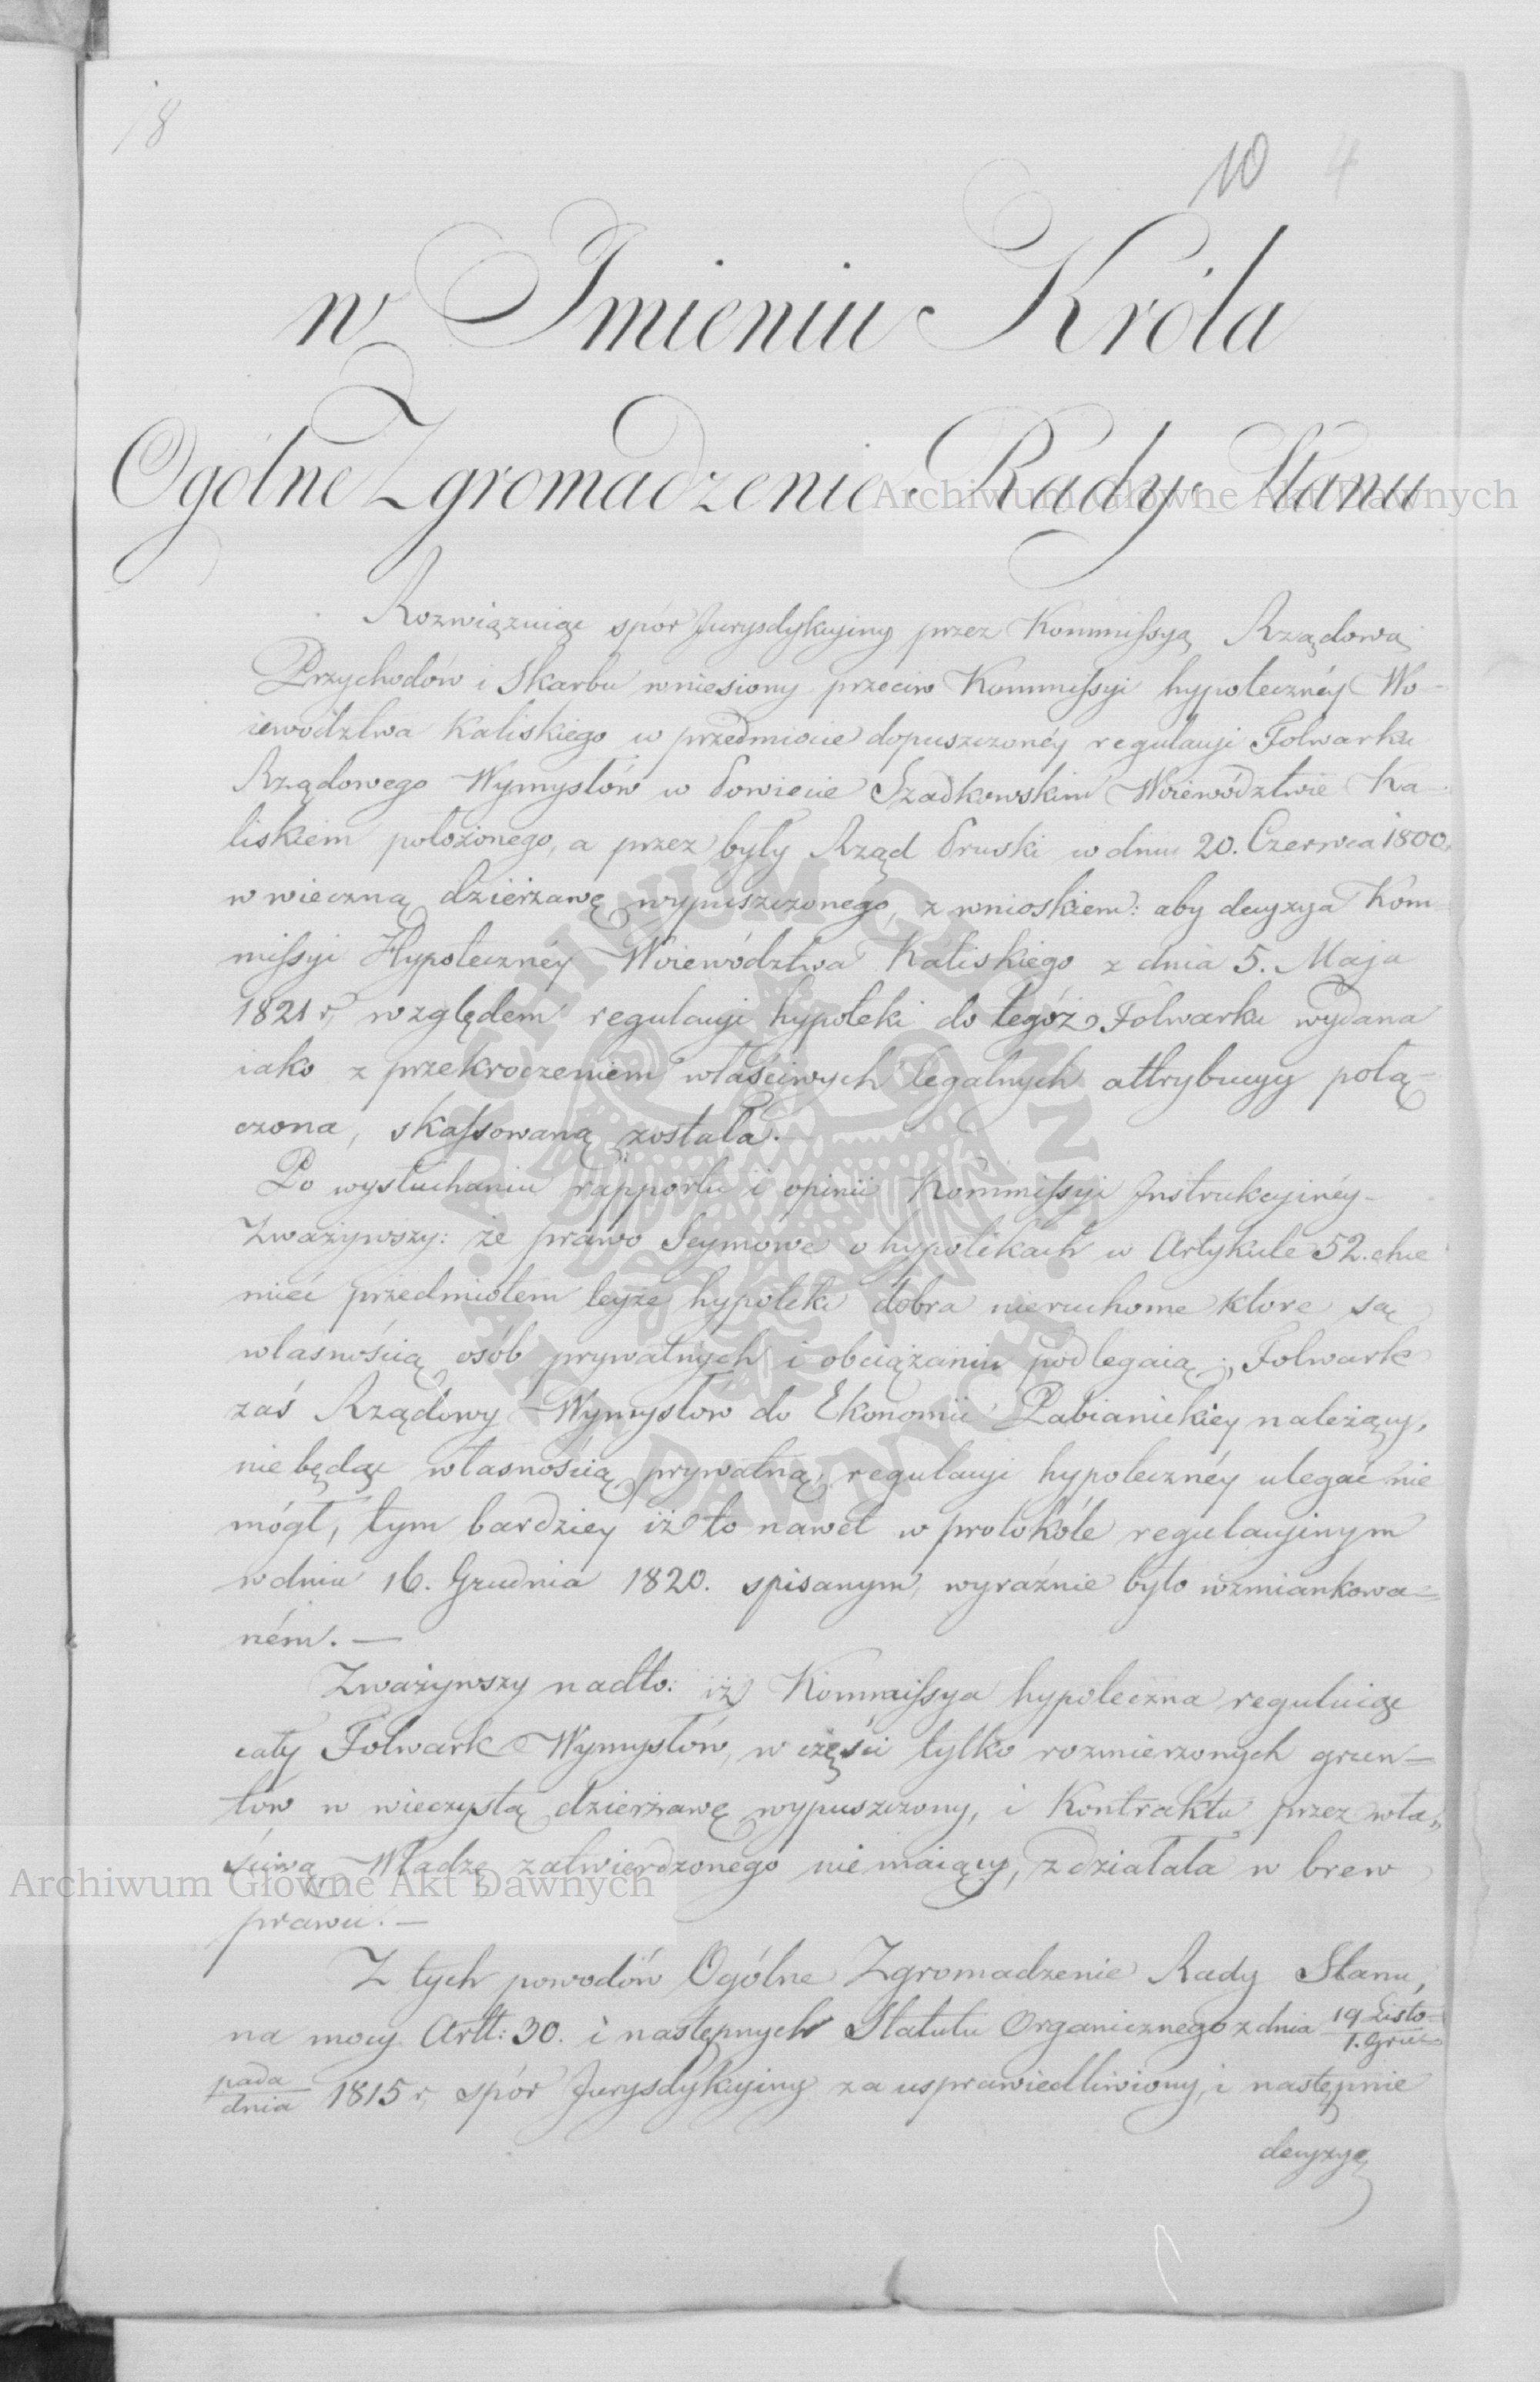 18
10 4
w Imieniu Króla
Ogólne Zgromadzenie Rady Stanu
Rozwiązuiąc spór Jurysdykcyiny przez Kommissyą Rządową
Przychodów i Skarbu wniesiony przeciw Kommissyi hypotecznéy Wo-
iewództwa Kaliskiego w przedmiocie dopuszczonéy regulacyi Folwarku
Rządowego Wymysłów w Powiecie Szadkowskim Woiewództwie Ka-
liskiem położonego, a przez były Rząd Pruski w dniu 20. Czerwca 1800.
w wieczną dzierżawę wypuszczonego, z wnioskiem: aby decyzya Kom-
missyi Hypotecznéy Woiewództwa Kaliskiego z dnia 5. Maja
1821 r, względem regulacyi hypoteki do tegóż Folwarku wydana
iako z przekroczeniem właściwych legalnych attrybucyy połą-
czona, skassowaną została.—
Po wysłuchaniu rapportu i opinii Kommissyi Instrukcyinéy-
Zważywszy: że prawo Seymowe o hypotekach w Artykule 52. chce
mieć przedmiotem teyże hypoteki dobra nieruchome które są
własnością osób prywatnych i obciążaniu podlegaią; Folwark
zaś Rządowy Wymysłów do Ekonomii Pabianickiey należący,
nie będąc własnością prywatną, regulacyi hypotecznéy ulegać nie
mógł, tym bardziey iż to nawet w protokóle regulacyinym
w dniu 16. Grudnia 1820. spisanym, wyraźnie było wzmiankowa=
ném.—
Zważywszy nadto: iż Kommissya hypoteczna reguluiąc
cały Folwark Wymysłów, w części tylko rozmierzonych grun=
tów w wieczystą dzierżawę wypuszczony, i Kontraktu przez wła„
ściwą Władzę zatwierdzonego nie maiący, zdziałała w brew
prawu.—
Z tych powodów Ogólne Zgromadzenie Rady Stanu,
na mocy Artt: 30. i następnych Statutu Organicznego z dnia 19 Listo-
1. Gru-
pada
dnia 1815 r, spór Jurysdykcyiny za usprawiedliwiony, i następnie
decyzyą
Archiwum Główne Akt Dawnych
Archiwum Główne Akt Dawnych
ARCHIWUM GŁÓWNE · AKT DAWNYCH ·